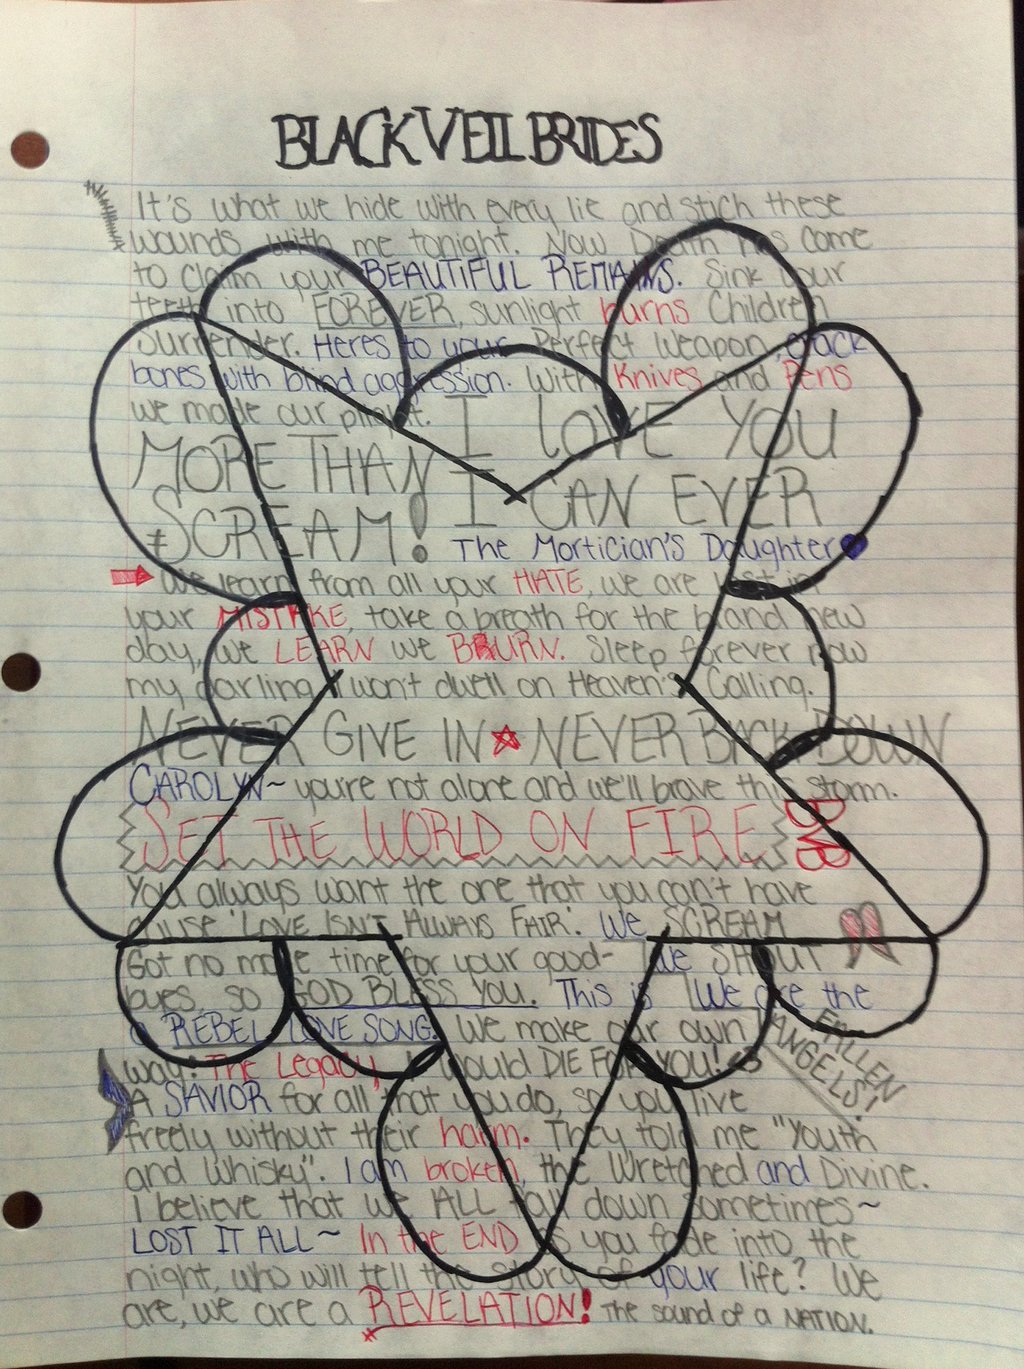 BLACK VEIL BRIDES
It's what we hide with every lie and stich these
wounds with me tonight. Now Death has come
to claim your BEAUTIFUL REMAINS. Sink your
teeth into FOREVER, sunlight burns Children
Surrender. Heres to your Perfect Weapon, crack
bones with blind aggression. With Knives and Pens
we made our plight. I LOVE YOU
MORE THAN I CAN EVER
SCREAM! The Mortician's Daughter
We learn from all your HATE, we are lost in
your MISTAKE, take a breath for the brand new
day, we LEARN we BURN. Sleep forever now
my darling I won't dwell on Heaven's Calling.
NEVER GIVE IN NEVER BACK DOWN
CAROLYN~ you're not alone and we'll brave this storm.
SET THE WORLD ON FIRE BVB
You always want the one that you can't have
cause 'LOVE ISN'T ALWAYS FAIR.' We SCREAM
Got no more time for your good- We SHOUT
byes, so GOD BLESS YOU. This is We are the
a REBEL LOVE SONG. We make our own FALLEN
ANGELS!
way: The Legacy, I would DIE FOR YOU! <3
A SAVIOR for all that you do, so you live
freely without their harm. They told me "Youth
and Whisky". I am broken, the Wretched and Divine.
I believe that we ALL fall down sometimes~
LOST IT ALL~ In the END as you fade into the
night, who will tell the story of your life? We
are, we are a REVELATION! The sound of a NATION.